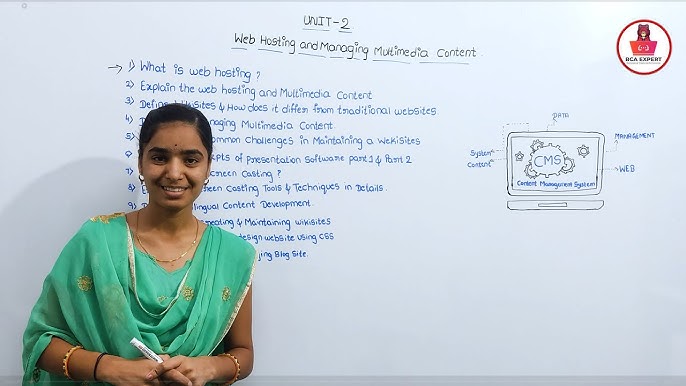 UNIT-2
Web Hosting and Managing Multimedia Content.
1) What is web hosting?
2) Explain the web hosting and Multimedia Content
3) Define Wikisites & How does it differ from traditional websites
4) D anaging Multimedia Content
5) ommon Challenges in Maintaining a Wekisites
6) epts of presentation Software part 1 & Part 2
7) creen Casting?
8) E een Casting Tools & Techniques in Details.
9) D lingual Content Development.
eating & Maintaining wikisites
design website using CSS
ging Blog Site.
BCA EXPERT
DATA
MANAGEMENT
System
Content
WEB
CMS
Content Management System